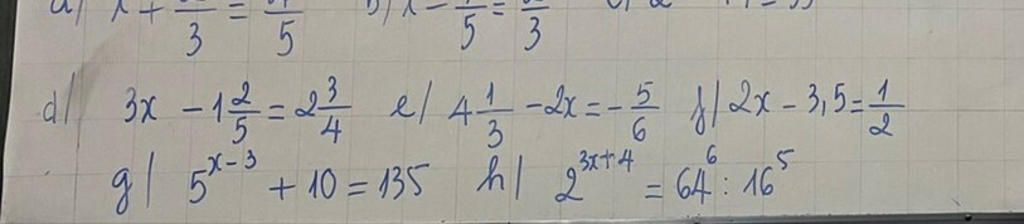 d/ 3x - 1 2/5 = 2 3/4 e/ 4 1/3 - 2x = - 5/6 f/ 2x - 3,5 = 1/2
g/ 5^{x-3} + 10 = 135 h/ 2^{3x+4} = 64^6 : 16^5